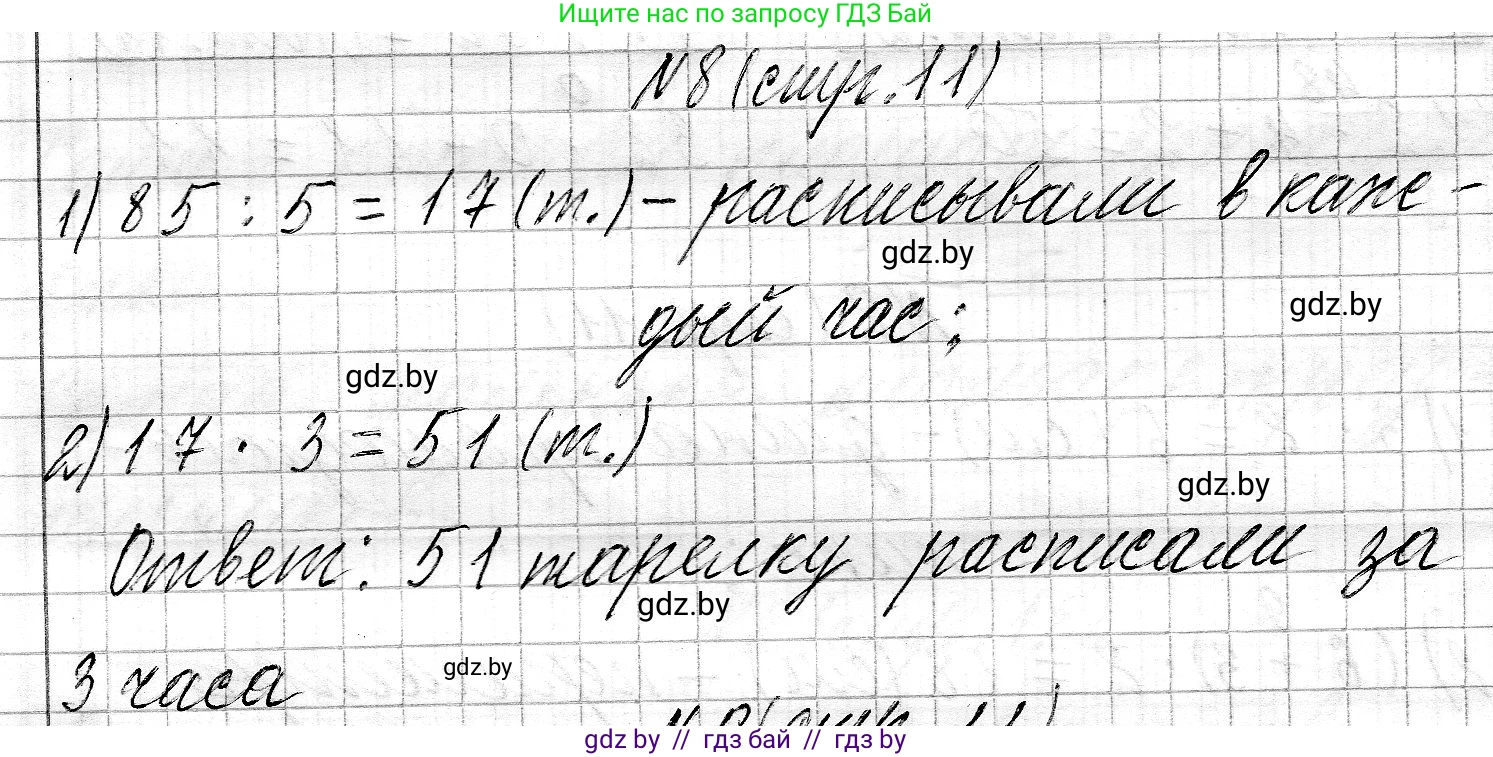 Ищите нас по запросу ГДЗ Бай
№8 (стр.11)
1) 85 : 5 = 17 (т.) – расписывали в каж-
gdz.by
дый час;
gdz.by
gdz.by
2) 17 · 3 = 51 (т.)
gdz.by
Ответ: 51 тарелку расписали за
gdz.by
3 часа
gdz.by
gdz.by // гдз бай // гдз by